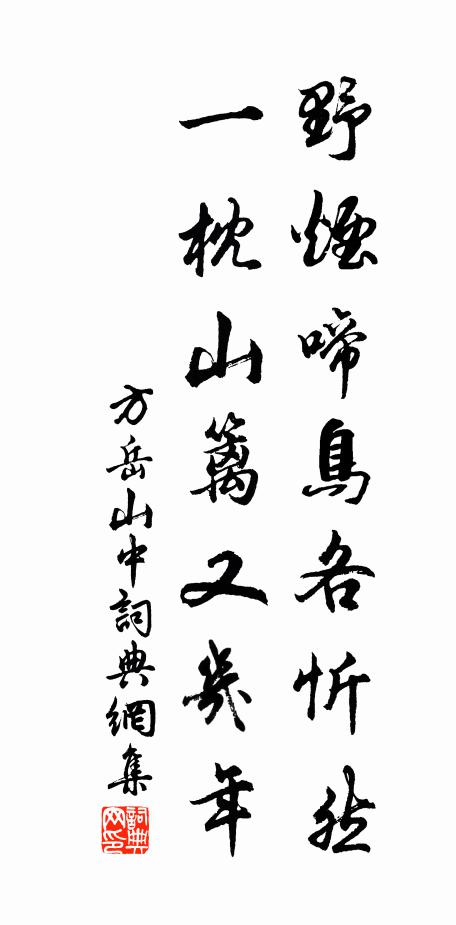 野煙啼鳥各忻然
一枕山籬又幾年
方岳山中詞典網集
詞典网印